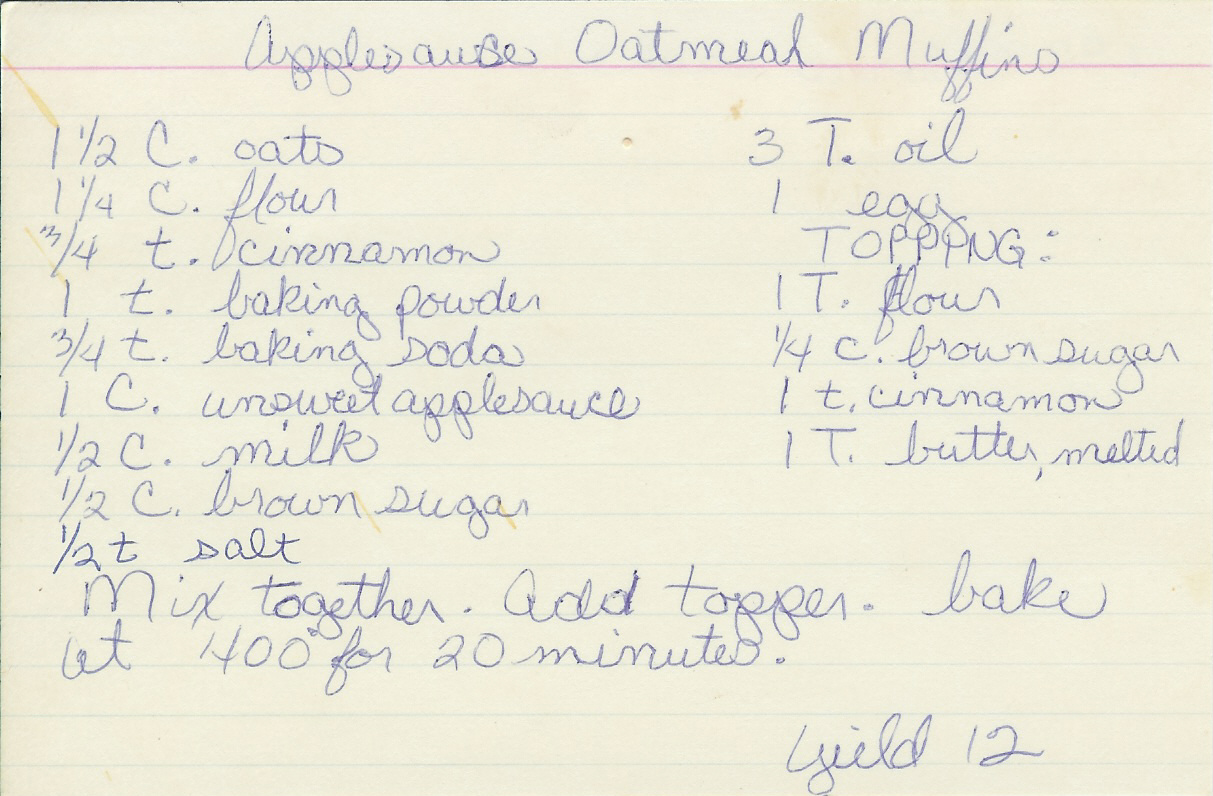 Applesauce Oatmeal Muffins
1 1/2 C. oats
1 1/4 C. flour
3/4 t. cinnamon
1 t. baking powder
3/4 t. baking soda
1 C. unsweet applesauce
1/2 C. milk
1/2 C. brown sugar
1/2 t salt
3 T. oil
1 egg
TOPPING:
1 T. flour
1/4 c. brown sugar
1 t. cinnamon
1 T. butter, melted
Mix together. Add topper. bake
at 400° for 20 minutes.
Yield 12